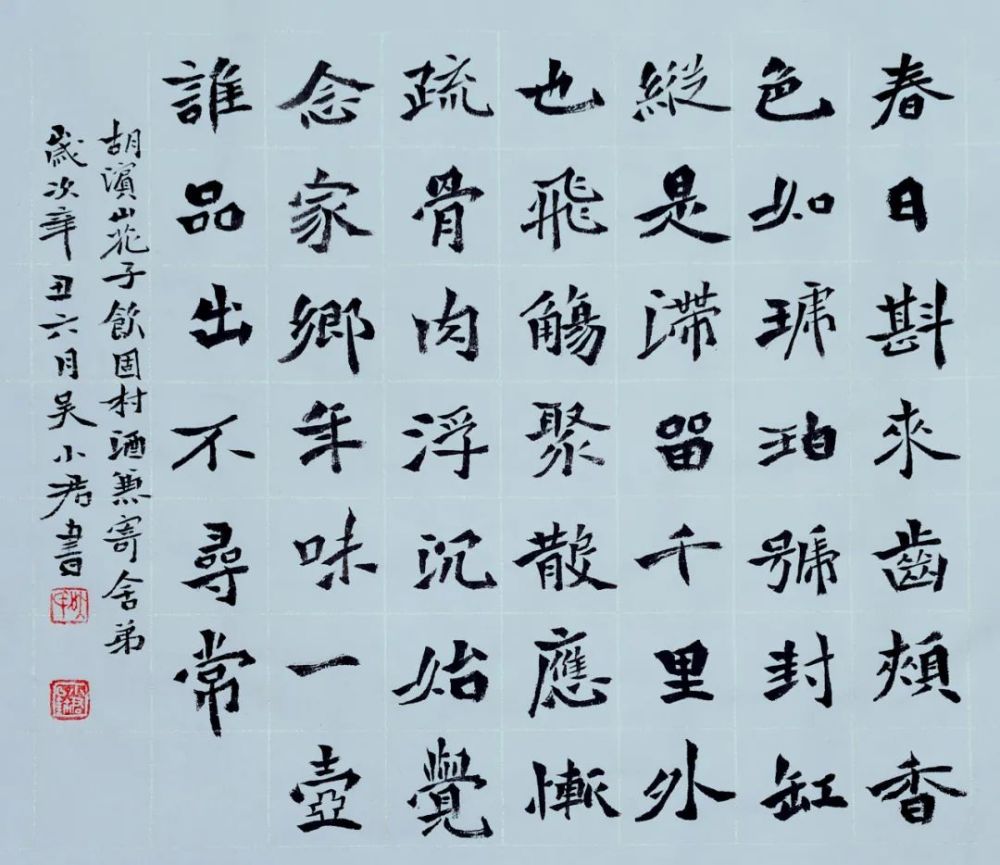 春日斟來齒頰香
色如琥珀號封缸
縱是滯留千里外
也飛觴聚散應慚
疏骨肉浮沉始覺
念家鄉年味一壺
誰品出不尋常
胡濱山花子飲固村酒兼寄舍弟
歲次辛丑六月吳小君書